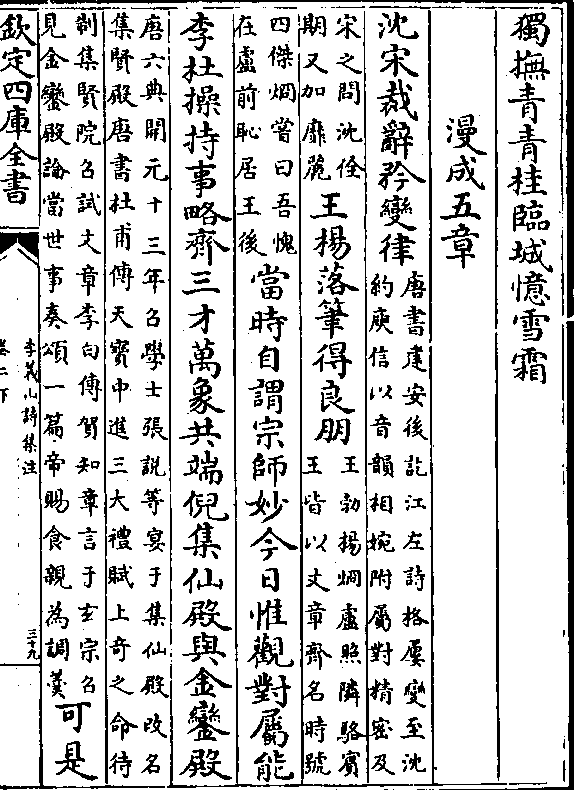 獨撫青青桂臨城憶雪霜
漫成五章
沈宋裁辭矜變律唐書建安後訖江左詩格屢變至沈
約庾信以音韻相婉附屬對精密及
宋之問沈佺
期又加靡麗王楊落筆得良朋王勃楊烱盧照隣駱賓
王皆以文章齊名時號
四傑烱嘗曰吾愧
在盧前恥居王後當時自謂宗師妙今日惟觀對屬能
李杜操持事略齊三才萬象共端倪集仙殿與金鑾殿
唐六典開元十三年召學士張說等宴于集仙殿改名
集賢殿唐書杜甫傳天寶中進三大禮賦上奇之命待
制集賢院召試文章李白傳賀知章言于玄宗召
見金鑾殿論當世事奏頌一篇帝賜食親為調羹可是
欽定四庫全書
李義山詩集注
卷二下
三十九